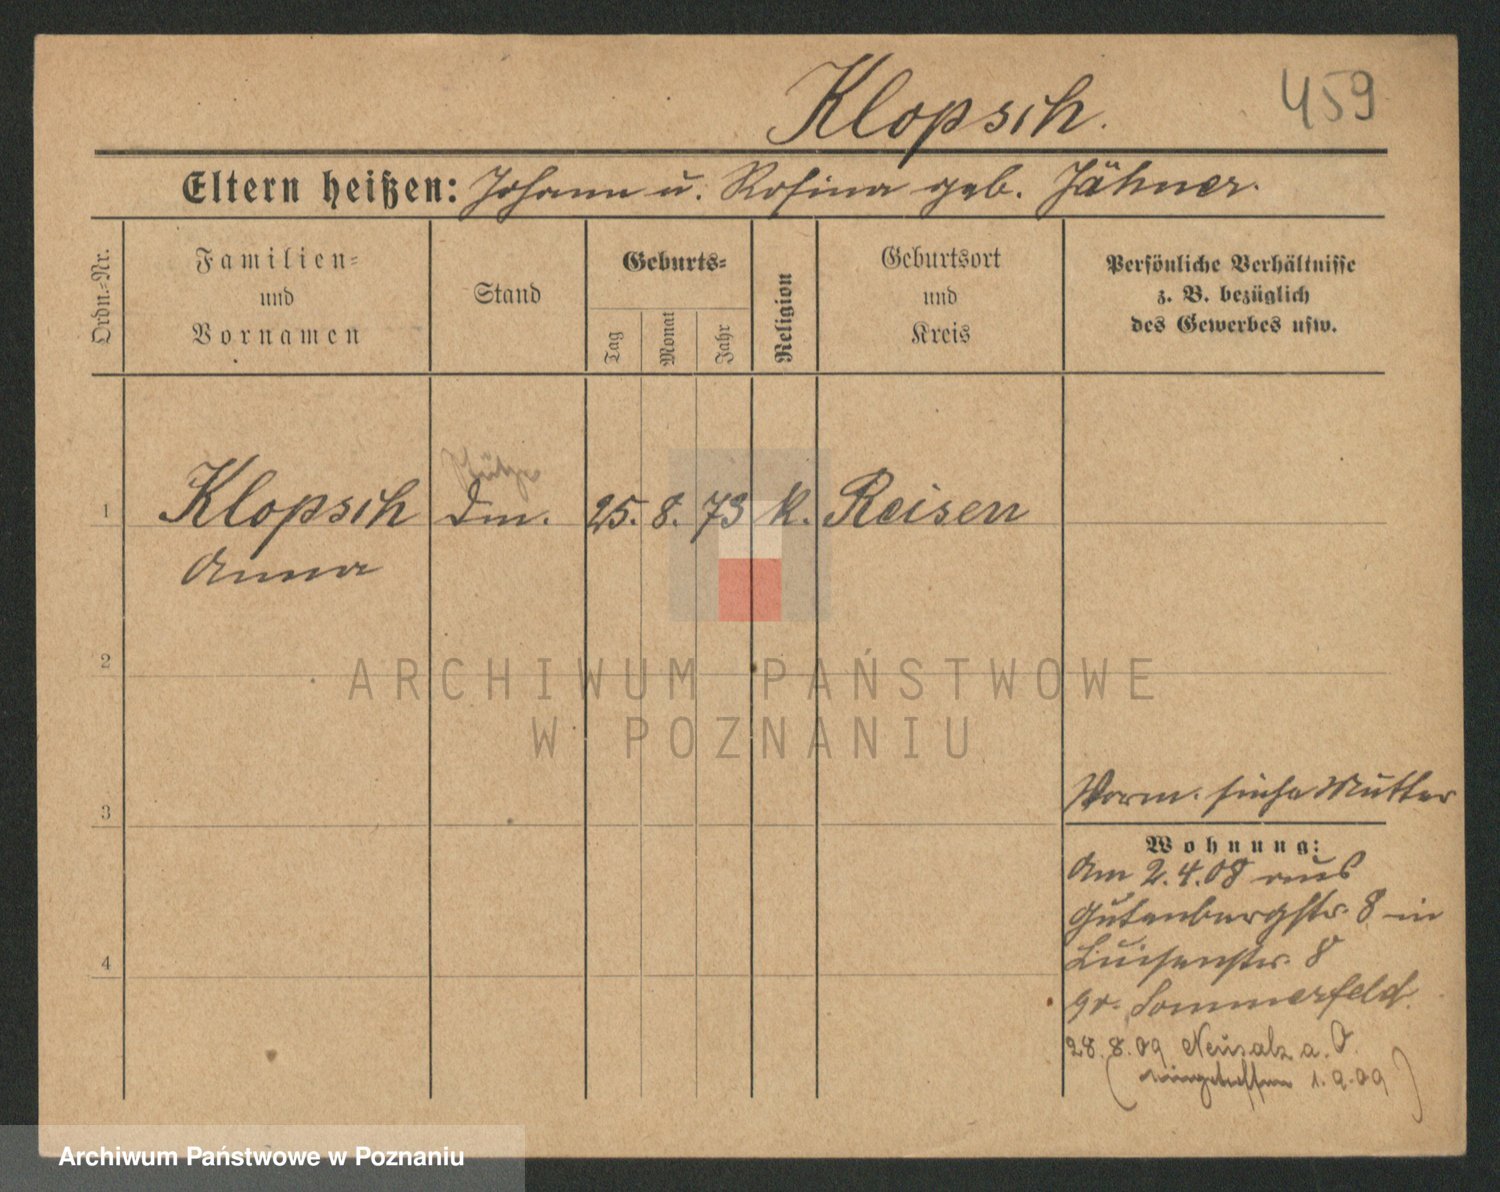 459
Klopsch.
Eltern heißen: Johann u. Rosina geb. Jähner.
Ordn.-Nr.
Familien-
und
Vornamen
Stand
Geburts-
Tag
Monat
Jahr
Religion
Geburtsort
und
Kreis
Persönliche Verhältnisse
z. B. bezüglich
des Gewerbes usw.
Stütze
1 Klopsch Dm. 25. 8. 73 k. Reisen
Anna
2
ARCHIWUM PAŃSTWOWE
W POZNANIU
3
Vorm. siehe Mutter
Wohnung:
Am 2.4.08 aus
Gutenbergstr. 8 in
Luisenstr. 8
4
gr. Sommerfeld.
28.8.09 Neusalz a. O.
(eingetroffen 1.9.09)
Archiwum Państwowe w Poznaniu